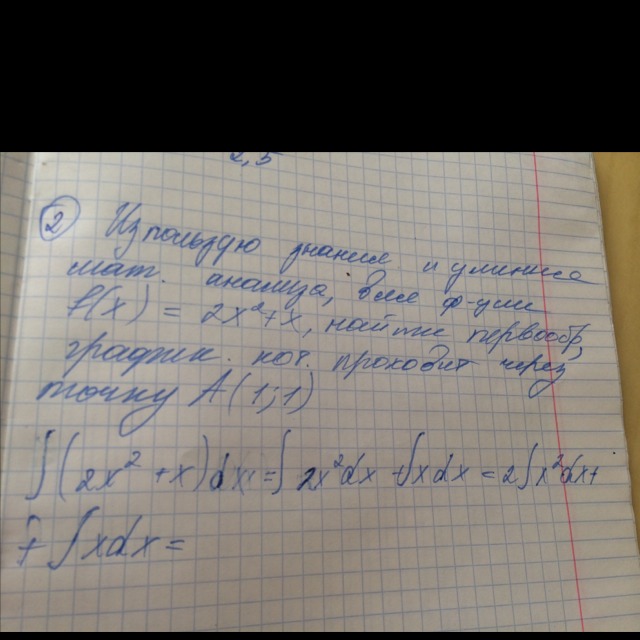 2,5
② Используя знания и умения
мат. анализа, для ф-ции
f(x) = 2x²+x, найти первообр,
график. кот. проходит через
точку A(1;1)
∫(2x²+x)dx=∫2x²dx+∫xdx=2∫x²dx+
+∫xdx=